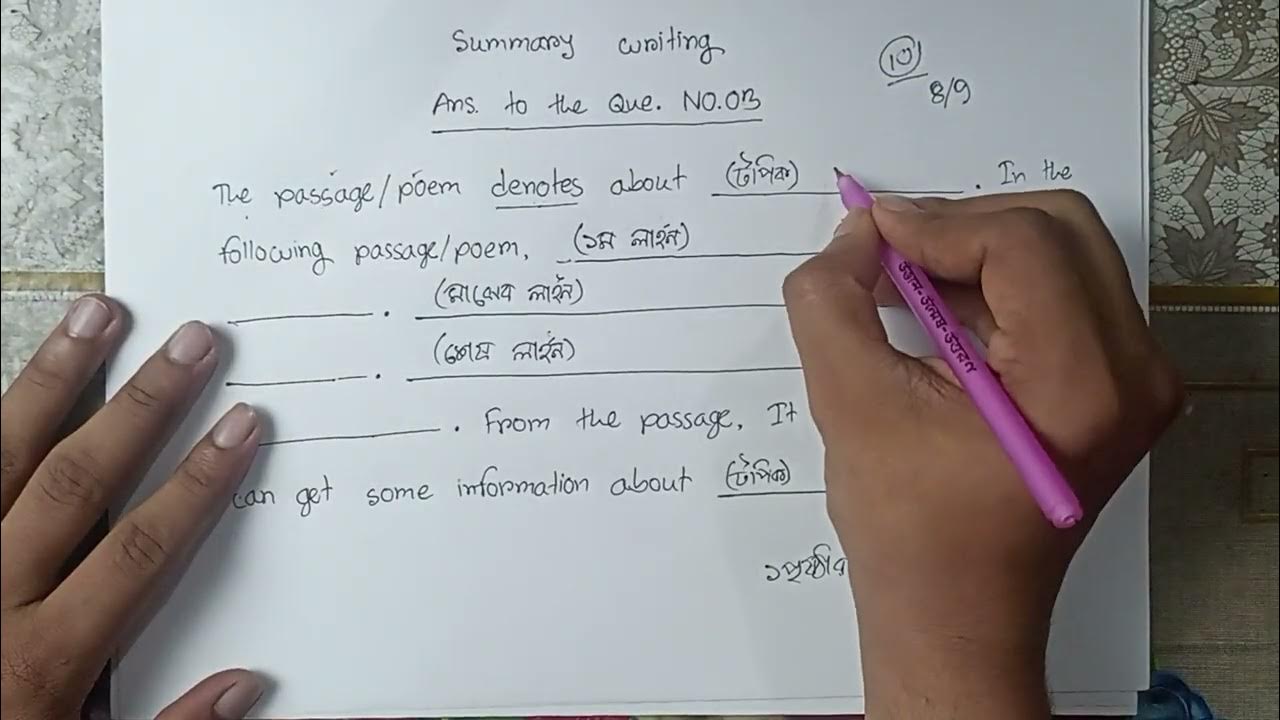 Summary writing
১০
8/9
Ans. to the Que. NO.03
The passage/poem denotes about (টপিক) . In the
following passage/poem, (১ম লাইন)
. (মাঝের লাইন)
. (শেষ লাইন)
. From the passage, It
can get some information about (টপিক)
১পৃষ্ঠার
উত্তাল-উন্মেষ-উত্তরণ